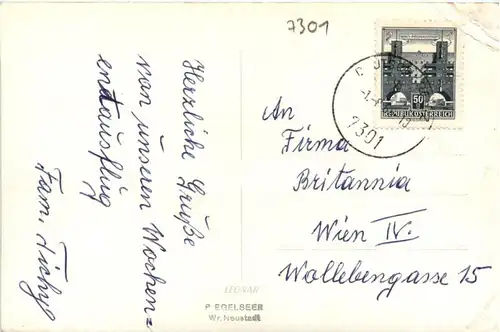 7301
Herzliche Grüße
von unseren Wochen=
endausflug
Fam. Tichy
50
REPUBLIK ÖSTERREICH
7301
An
Firma
Britannia
Wien IV.
Wollebengasse 15
P EGELSEER
Wr. Neustadt